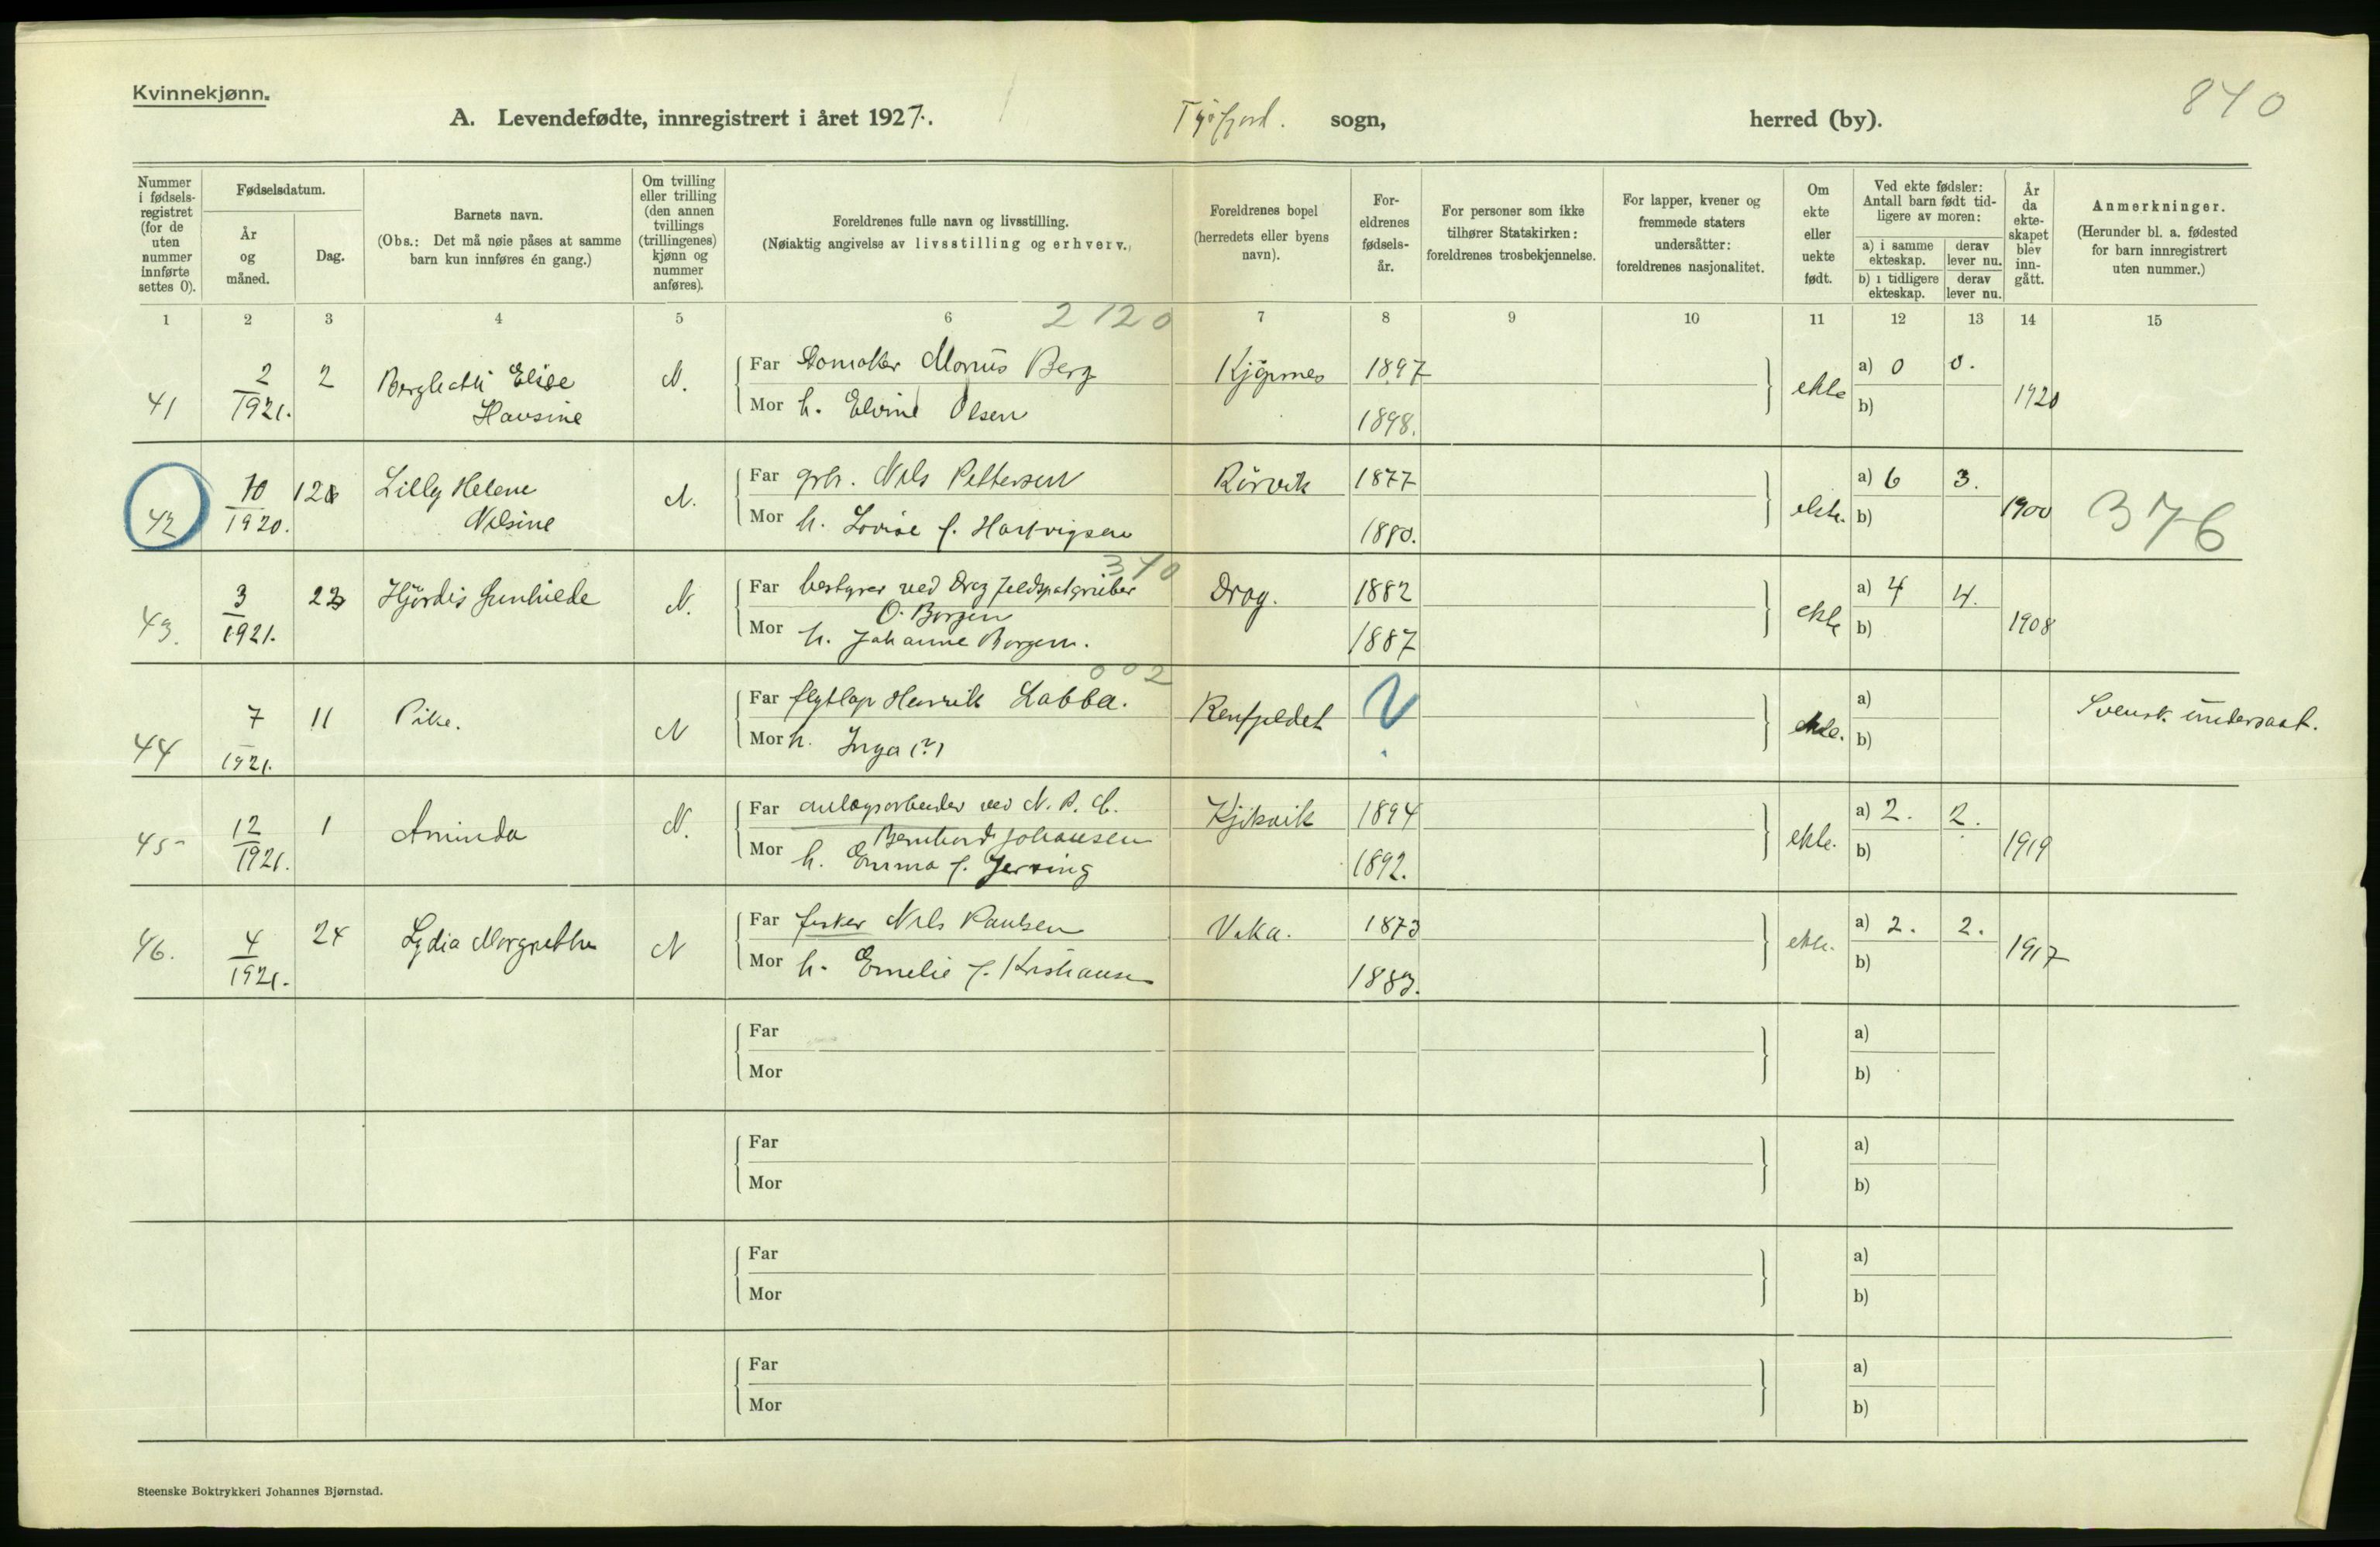 Kvinnekjønn.
840
A. Levendefødte, innregistrert i året 1927. Tysfjord. sogn, herred (by).
Nummer i fødselsregistret (for de uten nummer innførte settes 0).
Fødselsdatum.
År og måned.
Dag.
Barnets navn.
(Obs.: Det må nøie påses at samme barn kun innføres én gang.)
Om tvilling eller trilling (den annen tvillings (trillingenes) kjønn og nummer anføres).
Foreldrenes fulle navn og livsstilling.
(Nøiaktig angivelse av livsstilling og erhverv.)
Foreldrenes bopel (herredets eller byens navn).
Foreldrenes fødselsår.
For personer som ikke tilhører Statskirken: foreldrenes trosbekjennelse.
For lapper, kvener og fremmede staters undersåtter: foreldrenes nasjonalitet.
Om ekte eller uekte født.
Ved ekte fødsler: Antall barn født tidligere av moren:
a) i samme ekteskap. derav lever nu.
b) i tidligere ekteskap. derav lever nu.
År da ekteskapet blev inngått.
Anmerkninger.
(Herunder bl. a. fødested for barn innregistrert uten nummer.)
1 2 3 4 5 6 7 8 9 10 11 12 13 14 15
2120
41 2/1921. 2 Elise N. Far Berg 1897 ekte a) 0 0. 1920
Hansine Mor h. Olsen 1898. b)
42 10/1920. 12 Lilly Helene N. Far Nils Pettersen Rørvik 1877 ekte. a) 6 3. 1900 376
Nilsine Mor h. Lovise f. Hartvigsen 1880. b)
340
43. 3/1921. 23 Hjördis Gunhilde N. Far bestyrer ved Drag feldspatgruber Drag. 1882 ekte a) 4 4. 1908
O. Borgen
Mor h. Johanne Borgen. 1887 b)
002
44 7/1921. 11 Pike. N Far flytlap Henrik Labba. Renfjeldet ? ekte. a) Svensk undersaat.
Mor h. Inga (?) b)
45 12/1921. 1 Aminda N. Far anlægsarbeider ved Kjikvik 1894 ekte. a) 2. 2. 1919
Bernhard Johansen
Mor h. Emma f. Jerving 1892. b)
46. 4/1921. 24 Lydia Margrethe N Far fisker Nils Paulsen 1873 ekte. a) 2. 2. 1917
Mor h. Emelie f. 1883. b)
Far a)
Mor b)
Far a)
Mor b)
Far a)
Mor b)
Far a)
Mor b)
Steenske Boktrykkeri Johannes Bjørnstad.